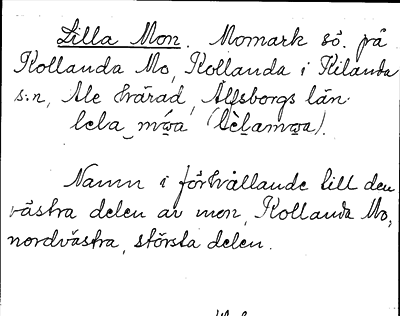 Lilla Mon. Momark sö. på
Kollanda Mo, Kollanda i Kilanda
s:n, Ale härad, Älfsborgs län
lela
Namn i förhållande till den
västra delen av mon, Kollanda Mo,
nordvästra, största delen.